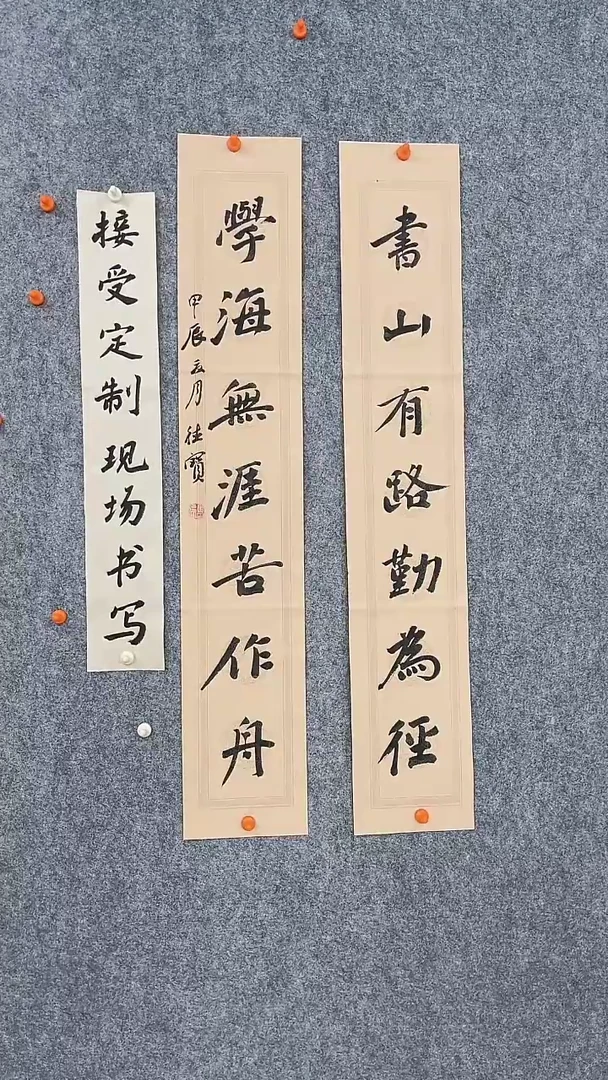 書山有路勤為徑
學海無涯苦作舟
甲辰五月 佳寶
接受定制现场书写